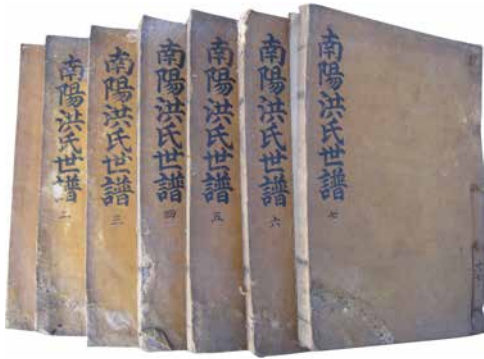 南陽洪氏世譜 二
南陽洪氏世譜 三
南陽洪氏世譜 四
南陽洪氏世譜 五
南陽洪氏世譜 六
南陽洪氏世譜 七